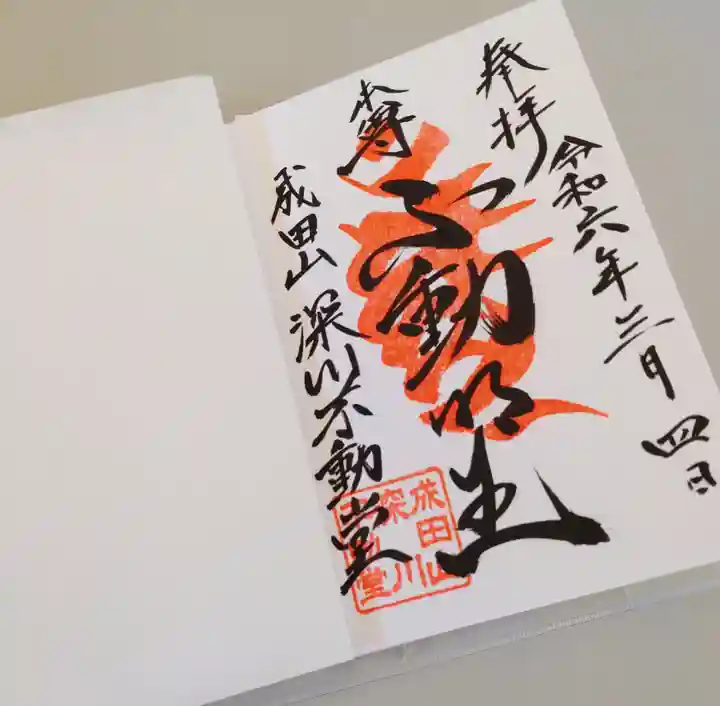 奉拝
令和六年三月四日
本尊
不動明王
成田山 深川不動堂
成田山
深川
不動堂